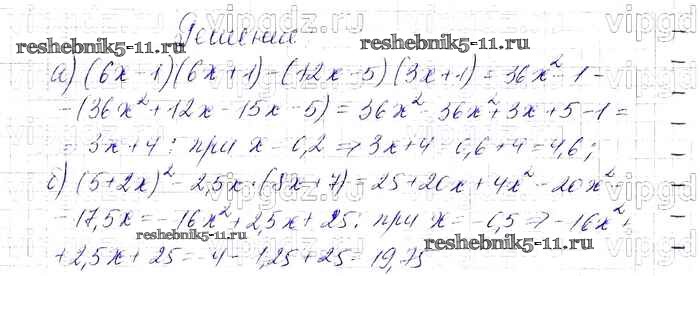 vipgdz.ru vipgdz.ru vipgd
Решение
reshebnik5-11.ru reshebnik5-11.ru
а) (6x-1)(6x+1)-(12x-5)(3x+1)=36x²-1-
-(36x²+12x-15x-5)=36x²-36x²+3x+5-1=
=3x+4; при x=0,2 ⇒ 3x+4=0,6+4=4,6;
с) (5+2x)²-2,5x·(8x+7)=25+20x+4x²-20x²-
-17,5x=-16x²+2,5x+25; при x=-0,5 ⇒ -16x²+
reshebnik5-11.ru reshebnik5-11.ru
+2,5x+25=-4-1,25+25=19,75